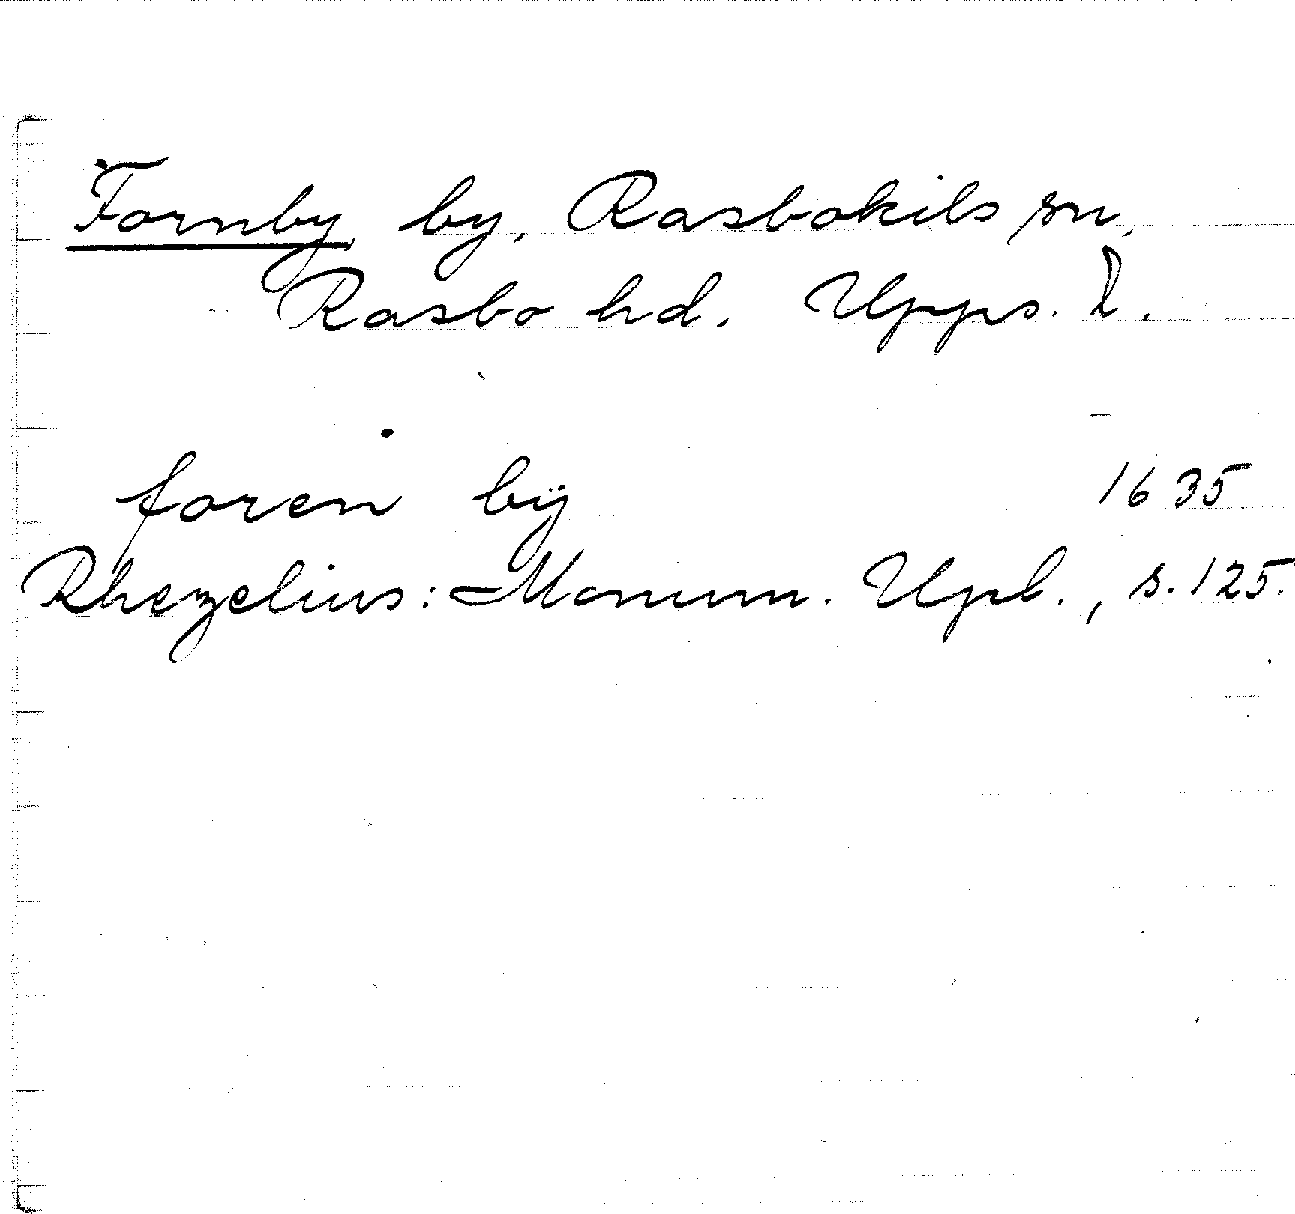 Fornby by, Rasbokils sn,
Rasbo hd. Upps. l.
foren bÿ 1635
Rhezelius: Monum. Upl., s. 125.